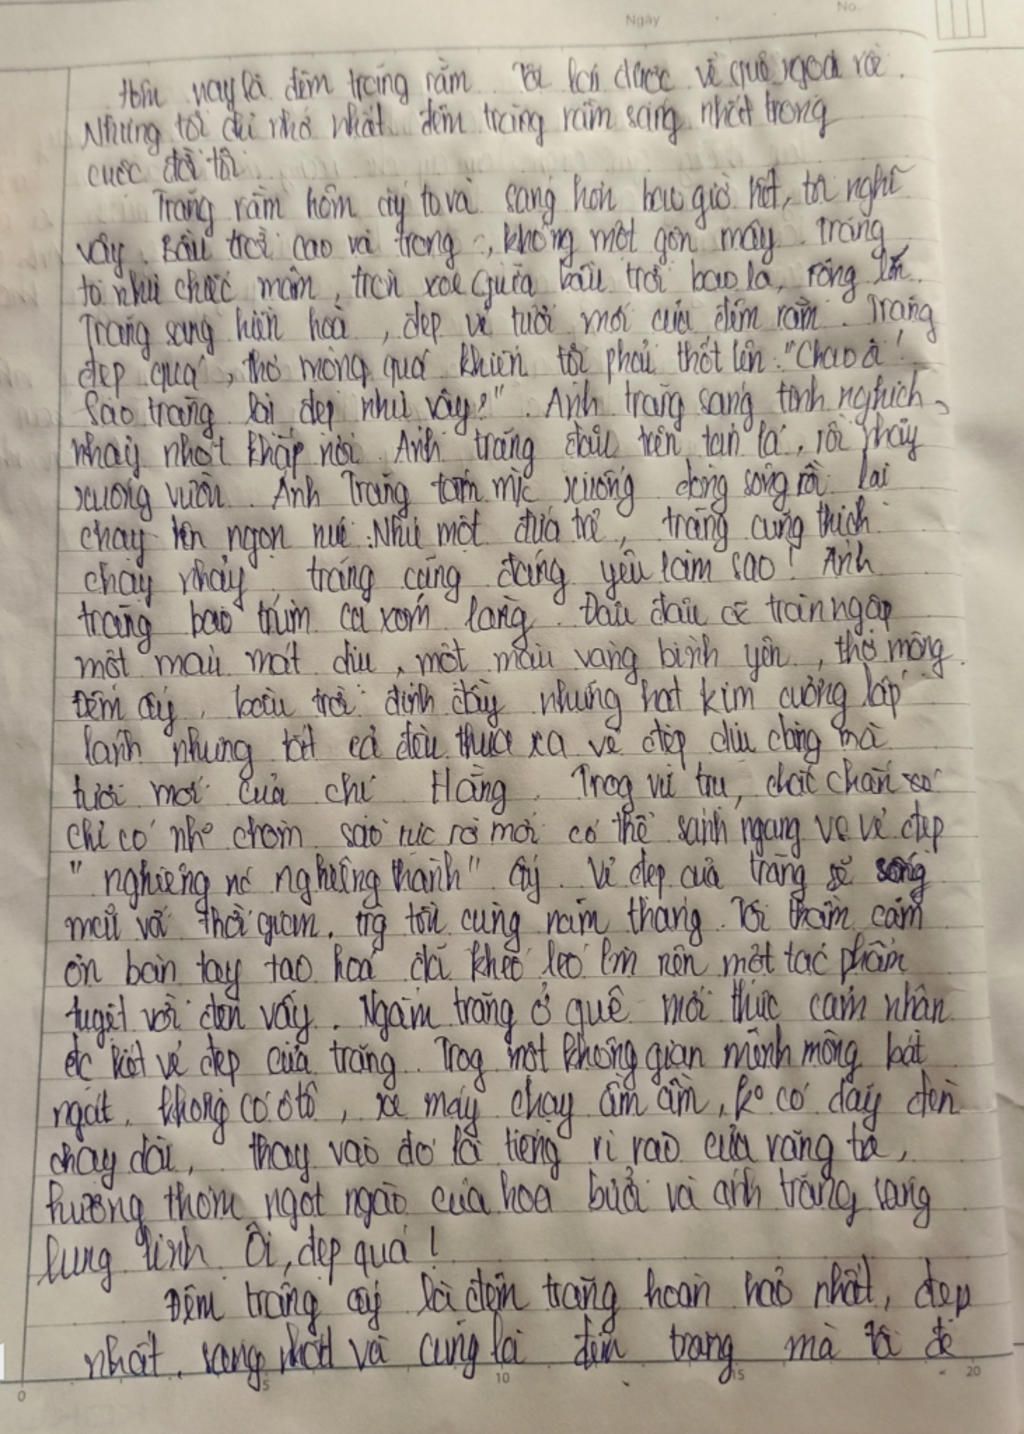 Ngày
No.
Hôm nay là đêm trăng rằm. Tôi lại được về quê ngoại rồi.
Nhưng tôi chỉ nhớ nhất đêm trăng rằm sáng nhất trong
cuộc đời tôi.
Trăng rằm hôm ấy to và sáng hơn bao giờ hết, tôi nghĩ
vậy. Bầu trời cao và trong, không một gợn mây. Trăng
to như chiếc mâm, tròn xoe giữa bầu trời bao la, rộng lớn.
Trăng sáng hiền hoà, đẹp vẻ tươi mới của đêm rằm. Trăng
đẹp quá, thơ mộng quá khiến tôi phải thốt lên: "Chao ôi!
Sao trăng lại đẹp như vậy?". Ánh trăng sáng tinh nghịch,
nhảy nhót khắp nơi. Ánh trăng đậu trên tán lá, rồi nhảy
xuống vườn. Ánh Trăng tắm mic xuống dòng sông rồi lại
chạy lên ngọn núi. Như một đứa trẻ, trăng cũng thích
chạy nhảy, trăng cũng đáng yêu làm sao! Ánh
trăng bao trùm cả xóm làng. Đâu đâu cũng tràn ngập
một màu mát dịu, một màu vàng bình yên, thơ mộng.
Đêm ấy, bầu trời đính đầy những hạt kim cương lấp
lánh nhưng tất cả đều thua xa vẻ đẹp dịu dàng mà
tươi mới của chị Hằng. Trog vũ trụ, chắc chắn
chỉ có chòm sao rực rỡ mới có thể sánh ngang vẻ đẹp
"nghiêng nc nghiêng thành" ấy. Vẻ đẹp của trăng sẽ sống
mãi với thời gian, tôi cùng năm tháng. Tôi thầm cảm
ơn bàn tay tạo hoá đã khéo léo lm nên một tác phẩm
tuyệt vời đến vậy. Ngắm trăng ở quê mới thực cảm nhận
đc hết vẻ đẹp của trăng. Trog một không gian mênh mông bát
ngát, không có ôtô, xe máy chạy ầm ầm, ko có dãy đèn
chạy dài, thay vào đó là tiếng rì rào của rặng tre,
hương thơm ngọt ngào của hoa bưởi và ánh trăng sáng
lung linh. Ôi, đẹp quá!
Đêm trăng ấy là đêm trăng hoàn hảo nhất, đẹp
nhất, sáng nhất và cũng là đêm trăng mà tôi để
0 5 10 15 20